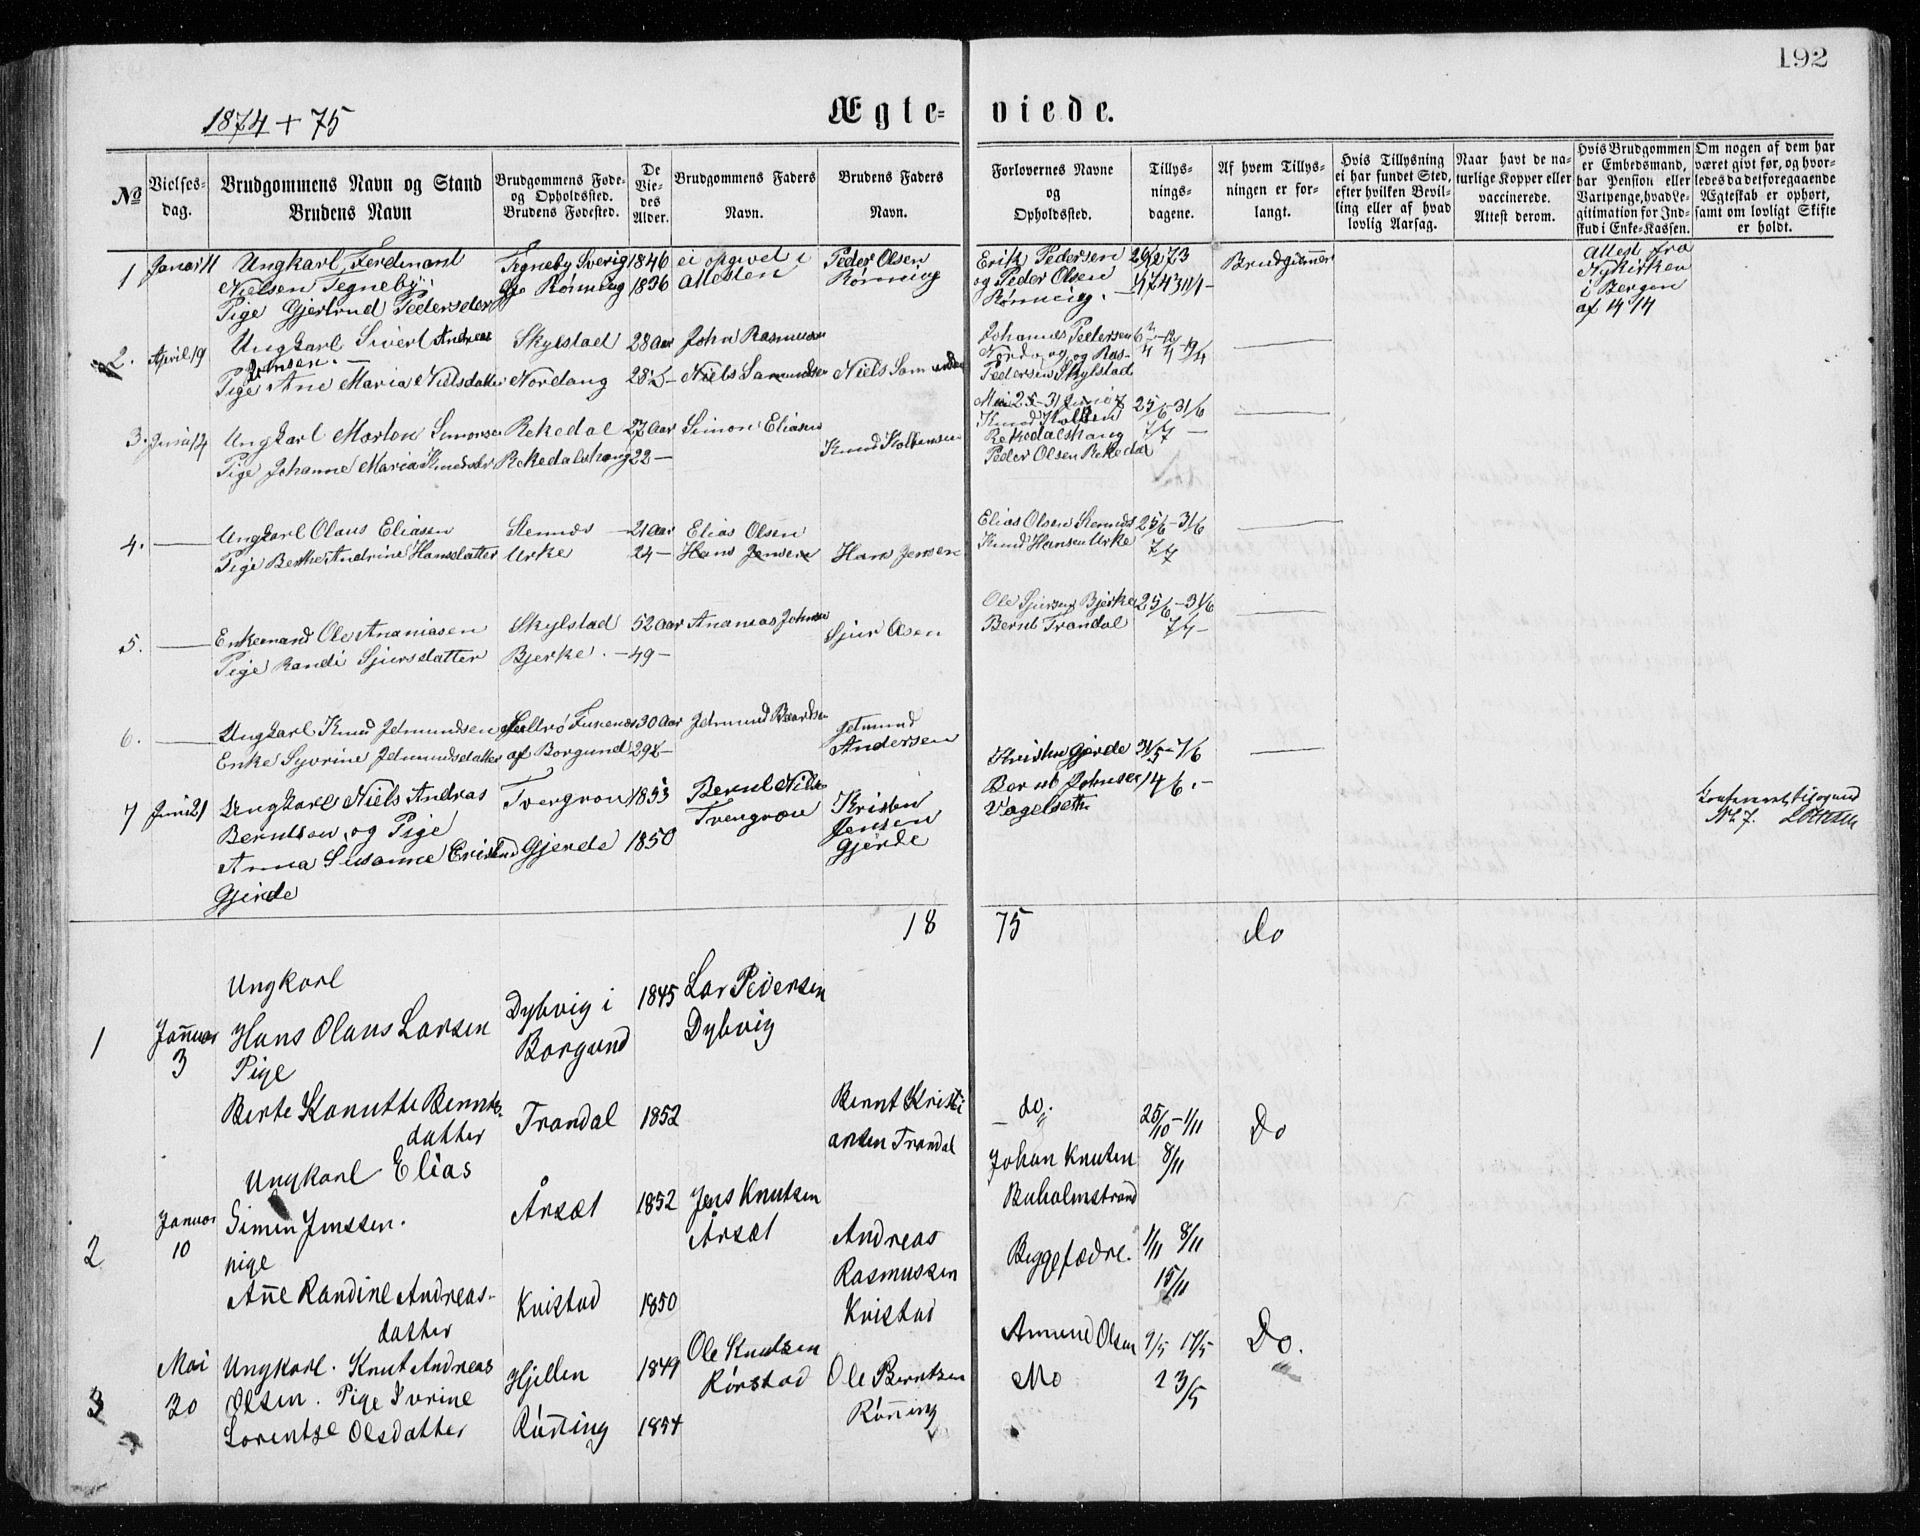 192
1874 + 75
Ægte- viede.
№
Vielses-
dag.
Brudgommens Navn og Stand
Brudens Navn
Brudgommens Føde-
og Opholdssted.
Brudens Fødested.
De
Vie-
des
Alder.
Brudgommens Faders
Navn.
Brudens Faders
Navn.
Forlovernes Navne
og
Opholdssted.
Tillys-
nings-
dagene.
Af hvem Tillys-
ningen er for-
langt.
Hvis Tillysning
ei har fundet Sted,
efter hvilken Bevil-
ling eller af hvad
lovlig Aarsag.
Naar havt de na-
turlige Kopper eller
vaccinerede.
Attest derom.
Hvis Brudgommen
er Embedsmand,
har Pension eller
Vartpenge, hvad Le-
gitimation for Ind-
skud i Enke-Kassen.
Om nogen af dem har
været givt før, og hvor-
ledes da det foregaaende
Ægteskab er ophørt,
samt om lovligt Skifte
er holdt.
1 Januar 11
Ungkarl Ferdinant
Nielsen Tegneby
Pige Gjertrud Pedersdatter
Tegneby Sverig 1846
Rønning 1836
ei opgivet i
Attesten
Peder Olsen
Rønning
Erik Pedersen
og Peder Olsen
Rønning.
Brudgommen
Attest fra
Nykirken
i Bergen
af 14/4
2. April 19
Ungkarl Sivert Andreas
Jonsen.
Pige Ane Maria Nielsdatter
Skylstad 28 Aar
Nordang 28½
John Rasmusen
Niels Samundsen
Niels Samundsen
Johannes Pedersen
Nordang og Ras-
Pedersen Skylstad
3. Juni 14
Ungkarl Morten Simonsen
Pige Johanne Maria Knudsdtr
Rekedal 27 Aar
Rekedalshaug 22 —
Simon Eliasen
Knud Kolbensen
Knud Kolben
Rekedalshaug
Peder Olsen Rekedal
25/6 - 31/6
7/7 —
4. —
Ungkarl Olaus Eliasen
Pige Berthe Andrine Hansdatter
Stennes — 21 Aar
Urke 24 —
Elias Olsen
Hans Jensen
Hans Jensen
Elias Olsen Stennes 25/6 - 31/6
Knud Hansen Urke 7/7
5. —
Enkemand Ole Ananiasen
Pige Randi Sjursdatter
Skylstad 52 Aar
Bjerke. — 49 —
Ananias Johnsen
Sjur Olsen
Ole Sjursen Bjerke 25/6 - 31/6
Bernt Trandal 7/7 -
6. —
Ungkarl Knud Jetmundsen
Enke Syvrine Jetmundsdatter
30 Aar
af Borgund 29½ —
Jetmund Baardsen
Jetmund
Andersen
Kristen Gjerde 31/5 - 7/6
Bernt Johnsen 14/6. -
Vagelseth
7 Juni 21
Ungkarl Niels Andreas
Berntsen, og Pige
Anna Susanne
Gjerde
Tvergrov 1853
Gjerde 1850
Bernt Niels
Tvergrov
Kristen
Jensen
Gjerde
No 7.
18 75 Do
1 Januar 3
Ungkarl
Hans Olaus Larsen
Pige
Berte Kanutte Bernts-
datter
Dybvig i
Borgund
1845
Lar Pedersen
Dybvig
Trandal 1852
Bernt Kristi
ansen Trandal
do.
Johan Knutsen
Buholmstrand
25/10 - 1/11
8/11
Do
2 Januar 10
Ungkarl Elias
Simon Jenssen.
pige
Anne Randine Andreas-
datter
Årsæt 1852
Jens Knutsen
Årsæt
Kvistad 1850
Andreas
Rasmussen
Kvistad
Begge fædre.
1/11 8/11
15/11
3 Mai 30
Ungkarl. Knut Andreas
Olsen. Pige Ivrine
Lorentse Olsdatter
Hjellen 1849
Rønning 1854
Ole Knudsen
Rørstad
Ole Berntsen
Rønning
Amund Olsen
Mo
9/5 17/5
23/5
Do.